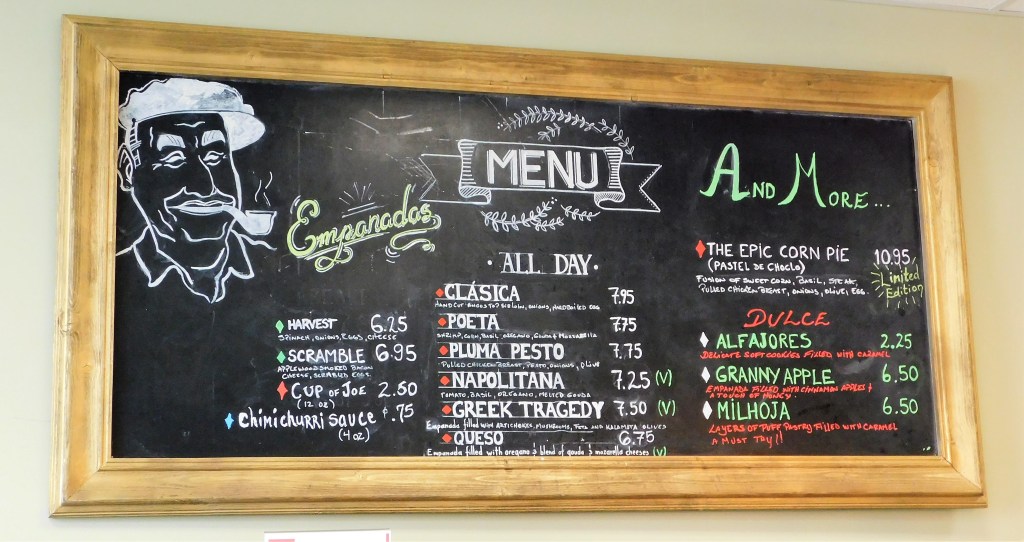 MENU
Empanadas
HARVEST 6.25
SPINACH, ONIONS, EGGS, CHEESE
SCRAMBLE 6.95
APPLEWOOD SMOKED BACON
CHEESE, SCRAMBLED EGGS
CUP OF JOE 2.50
(12 OZ)
CHIMICHURRI SAUCE $.75
(4 oz)
· ALL DAY ·
CLÁSICA 7.95
HAND CUT ONIONS, HARDBOILED EGG
POETA 7.75
SHRIMP, CORN, BASIL, OREGANO, GOUDA & MOZZARELLA
PLUMA PESTO 7.75
PULLED CHICKEN BREAST, PESTO, ONIONS, OLIVE
NAPOLITANA 7.25 (V)
TOMATO, BASIL, OREGANO, MELTED GOUDA
GREEK TRAGEDY 7.50 (V)
Empanada filled WITH ARTICHOKES, MUSHROOMS, FETA AND KALAMATA OLIVES
QUESO 6.75
Empanada filled with oregano & blend of gouda & mozarella cheeses (V)
AND MORE...
THE EPIC CORN PIE 10.95
(PASTEL DE CHOCLO)
Limited
Edition
FUSION OF SWEET CORN, BASIL, STEAK,
PULLED CHICKEN BREAST, ONIONS, OLIVE, EGG.
DULCE
ALFAJORES 2.25
DELICATE SOFT COOKIES FILLED WITH CARAMEL
GRANNY APPLE 6.50
EMPANADA FILLED WITH CINNAMON APPLES &
A TOUCH OF HONEY.
MILHOJA 6.50
LAYERS OF PUFF PASTRY FILLED WITH CARAMEL
A MUST TRY!!